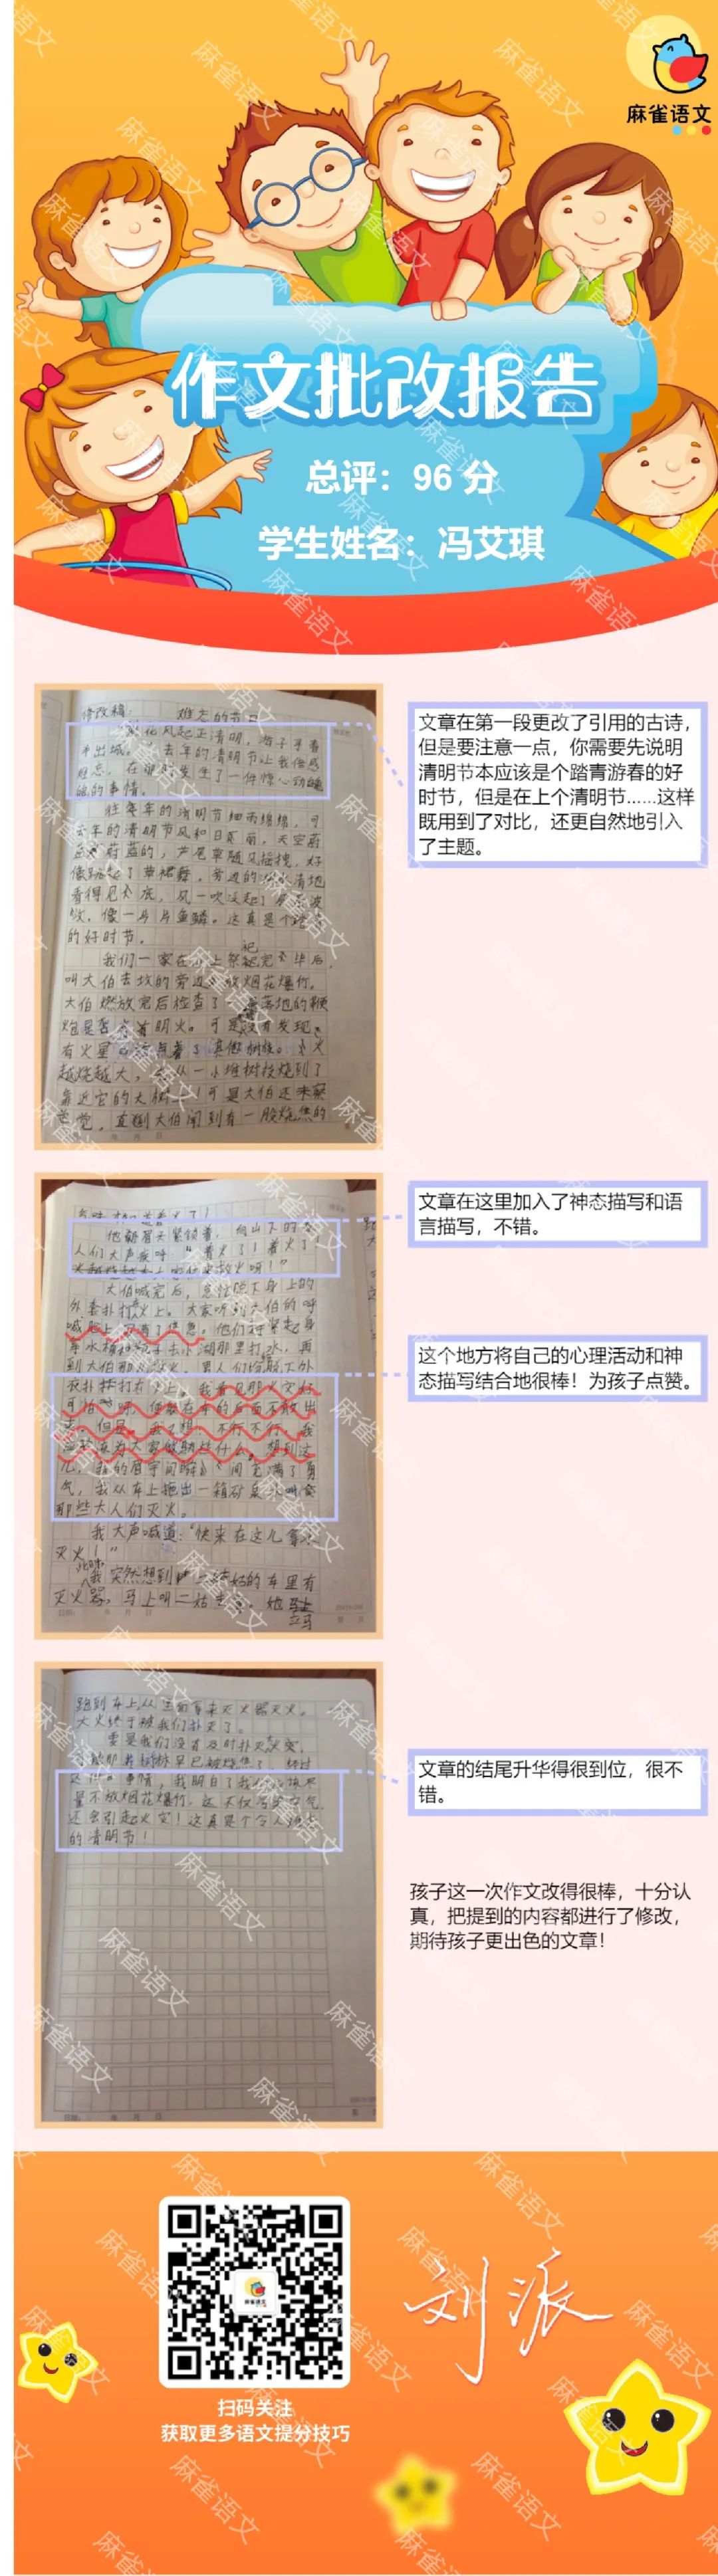 麻雀语文
作文批改报告
总评：96 分
学生姓名：冯艾琪
修改稿： 难忘的节日
花风起正清明，游子寻春
半出城。 去年的清明节让我倍感
难忘，在那里发生了一件惊心动魄
的事情。
文章在第一段更改了引用的古诗，
但是要注意一点，你需要先说明
清明节本应该是个踏青游春的好
时节，但是在上个清明节……这样
既用到了对比，还更自然地引入
了主题。
往每年的清明节细雨绵绵，可
去年的清明节风和日丽，天空蔚
蔚蓝的，芦尾草随风摇拽，好
像跳起了草裙舞，旁边的清地
看得见底，风一吹泛起了波
纹，像一片片鱼鳞。这真是个
的好时节。
我们一家在山上祭祀完毕后，
叫大伯去坟的旁边放烟花爆竹。
大伯燃放完后检查了落地的鞭
炮是否有明火。可是没有发现
有火星点着了其他树枝。火
越烧越大，从一小堆树枝烧到了
靠近它的大树！可是大伯还未察
觉，直到大伯闻到有一股烧焦的
他皱眉头紧锁着，向山下的
人们大声疾呼：“着火了！着火了
来救火呀！”
文章在这里加入了神态描写和语
言描写，不错。
大伯喊完后，急忙脱下身上的
外套扑打火上。大家听到大伯的呼
喊脸上写满了焦急，他们赶紧起身
拿水桶和盆子去小湖那里打水，再
到大伯那救火。男人们脱下外
衣扑打在火。我看见那火灾好
可怕呀，便躲在车的后面不敢出
来。但是，我又想，不行不行，我
应该为大家做些什么。想到这
儿，我的眉宇间瞬间充满了勇
气，我从车上拖出一箱矿泉水叫拿
那些大人们灭火。
这个地方将自己的心理活动和神
态描写结合地很棒！为孩子点赞。
我大声喊道：“快来在这儿拿水
灭火！”
此时，我突然想到二姑的车里有
灭火器，马上叫二姑去拿。她立马
跑到车上从里面拿来灭火器灭火。
大火终于被我们扑灭了。
要是我们没有及时扑灭火灾，
那片树林早已被烧焦了。经过
这件事情，我明白了我们应该尽
量不放烟花爆竹，这不仅污染空气，
还会引起火灾！这真是个令人难忘
的清明节！
文章的结尾升华得很到位，很不
错。
孩子这一次作文改得很棒，十分认
真，把提到的内容都进行了修改，
期待孩子更出色的文章！
刘派
麻雀语文
扫码关注
获取更多语文提分技巧